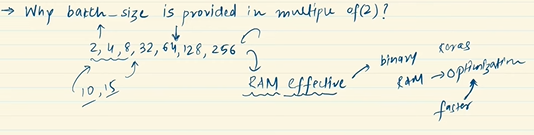 → Why batch_size is provided in multiple of (2)?
2, 4, 8, 32, 64, 128, 256
10, 15
RAM effective
binary
RAM → optimization
faster